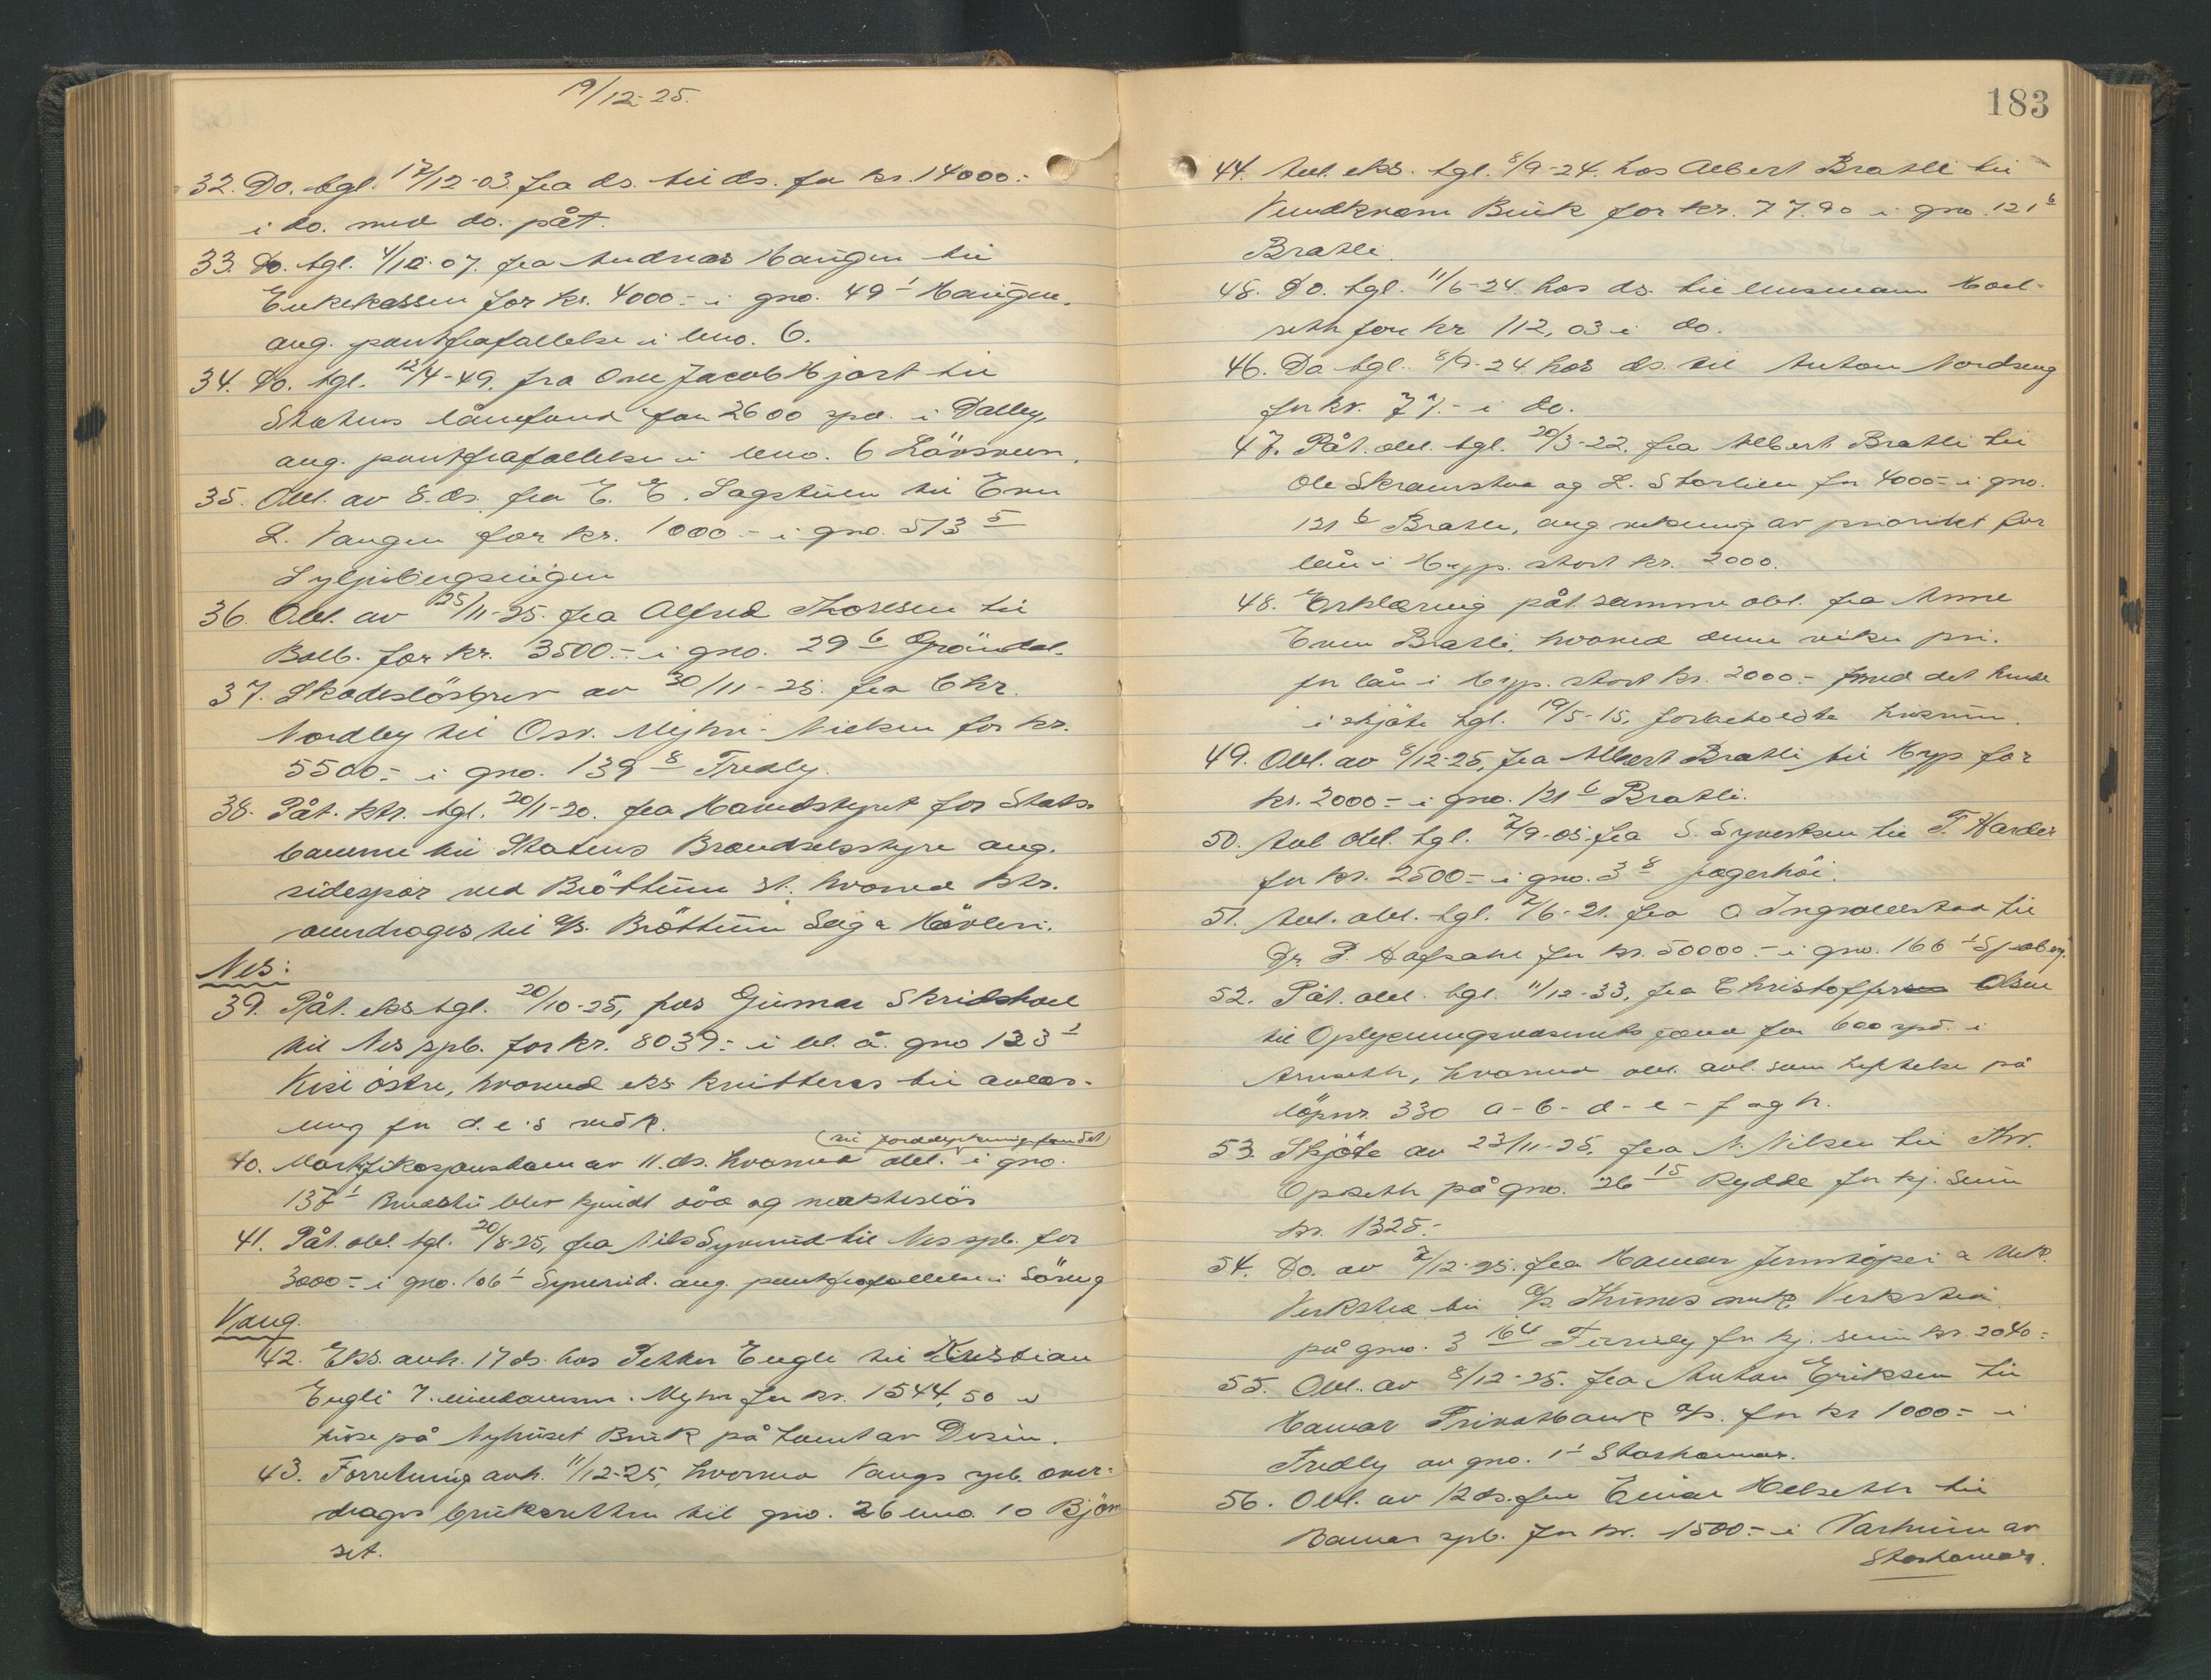 19/12-25.
32. Do. tgl. 17/12-03. fra ds. til ds. for kr. 14000.-
i do. med do. påt.
33. Do. tgl. 4/12-07. fra Andreas Haugen til
Enkekassen for kr. 4000.- i gno. 49 1 Haugen,
ang. pantefrafallelse i bno. 6.
34. Do. tgl. 12/4-49. fra Ole Jacob Hjort til
Statens lånefond for 2600 spd. i Dalby,
ang. pantefrafallelse i bno. 6 Lövsveen.
35. Obl. av 8. ds. fra E. E. Sagstuen til Even
L. Vangen for kr. 1000.- i gno. 573 5
36. Obl. av 25/11-25. fra Alfred Thoresen til
Bolb. for kr. 3500.- i gno. 29 6 Gröndal.
37. Skadeslösbrev av 30/11-25. fra Chr.
Nordby til Osv. Myhre-Nielsen for kr.
5500.- i gno. 139 8 Tredly.
38. Påt. ktr. tgl. 20/11-20. fra Hovedstyret for Stats-
banerne til Statens Brændselsstyre ang.
sidespor ved Bröttum st. hvorved ktr.
overdrages til A/S. Bröttum Sag & Hövleri.
Nes:
39. Påt. eks. tgl. 20/10-25, hos Gunnar Skridshol
til Nes spb. for kr. 8039.- i bl. a. gno 123 1
Kise östre, hvorved eks. knitteres til avlös-
ning for d. e. s. vedk.
(til jorddyrkningsfondet)
40. Mortifikasjonsdom av 11. ds. hvorved obl. i gno.
137 1 blev kjendt död og makteslös
41. Påt. obl. tgl. 20/8-25, fra Nils Syverud til Nes spb. for
3000.- i gno. 106 1 Syverud. ang. pantefrafallelse i Söreng
Vang.
42. Eks. avh. 17 ds. hos Petter Engli til Kristian
Engli v. Myhre for kr. 1544,50 i
huse på Nyhuset Bruk på tomt av Disen.
43. Forretning avh. 11/12-25, hvorved Vangs spb. over-
drages bruksretten til gno. 26 bno. 10 Björn
set.
183
44. Avl. eks. tgl. 8/9-24. hos Albert Bratli til
Brük for kr. 77.90 i gno. 121 6
Bratli.
45. Do. tgl. 11/6-24. hos ds. til Hoel-
seth for kr 112,03 i do.
46. Do tgl. 8/9-24 hos ds. til Anton Nordseng
for kr. 71.- i do.
47. Påt. obl. tgl. 20/3-22. fra Albert Bratli til
Ole Skramstad og L. Storlien for 4000.- i gno.
121 6 Bratli, ang vikning av prioritet for
lån i Hyp. stort kr. 2000.
48. Erklæring påt. samme obl. fra Anne
Even Bratli, hvorved denne viker pri.
for lån i Hyp. stort kr. 2000.- med det hende
i skjöte tgl. 19/5-15, forbeholdte husrum.
49. Obl. av 8/12-25, fra Albert Bratli til Hyp for
kr. 2000.- i gno. 121 6 Bratli.
50. Avl. obl. tgl. 2/9-05 fra S. Syvertsen til T. Harder
for kr. 2500.- i gno. 3 8 Jægerhöi.
51. Avl. obl. tgl. 2/6-21. fra O Ingvoldstad til
Dr. P. Hafsahl for kr. 50000.- i gno. 166 1
52. Påt. obl. tgl. 11/12-33, fra Christoffer Olsen
til Oplysningsvesenets fond for 600 spd. i
Arneseth, hvorved obl. avl. som heftelse på
löpnr. 330 a-b-d-e-f og h.
53. Skjöte av 23/11-25. fra N. Nilsen til Thv.
Opseth på gno. 26 15 Rydde for kj. sum
kr. 1325.-
54. Do. av 7/12-25. fra Hamar Jernstöperi & Mek.
Verksted til A/S. Thunes mek. Verksted
på gno. 3 164 Furuly for kj. sum kr. 2040.-
55. Obl. av 8/12-25. fra Anton Eriksen til
Hamar Privatbank A/S. for kr 1000.- i
Fredly av gno. 1 1 Storhamar.
56. Obl. av 12 ds. fra Einar Helseth til
Hamar spb. for kr. 1500.- i Varheim av
Storhamar.